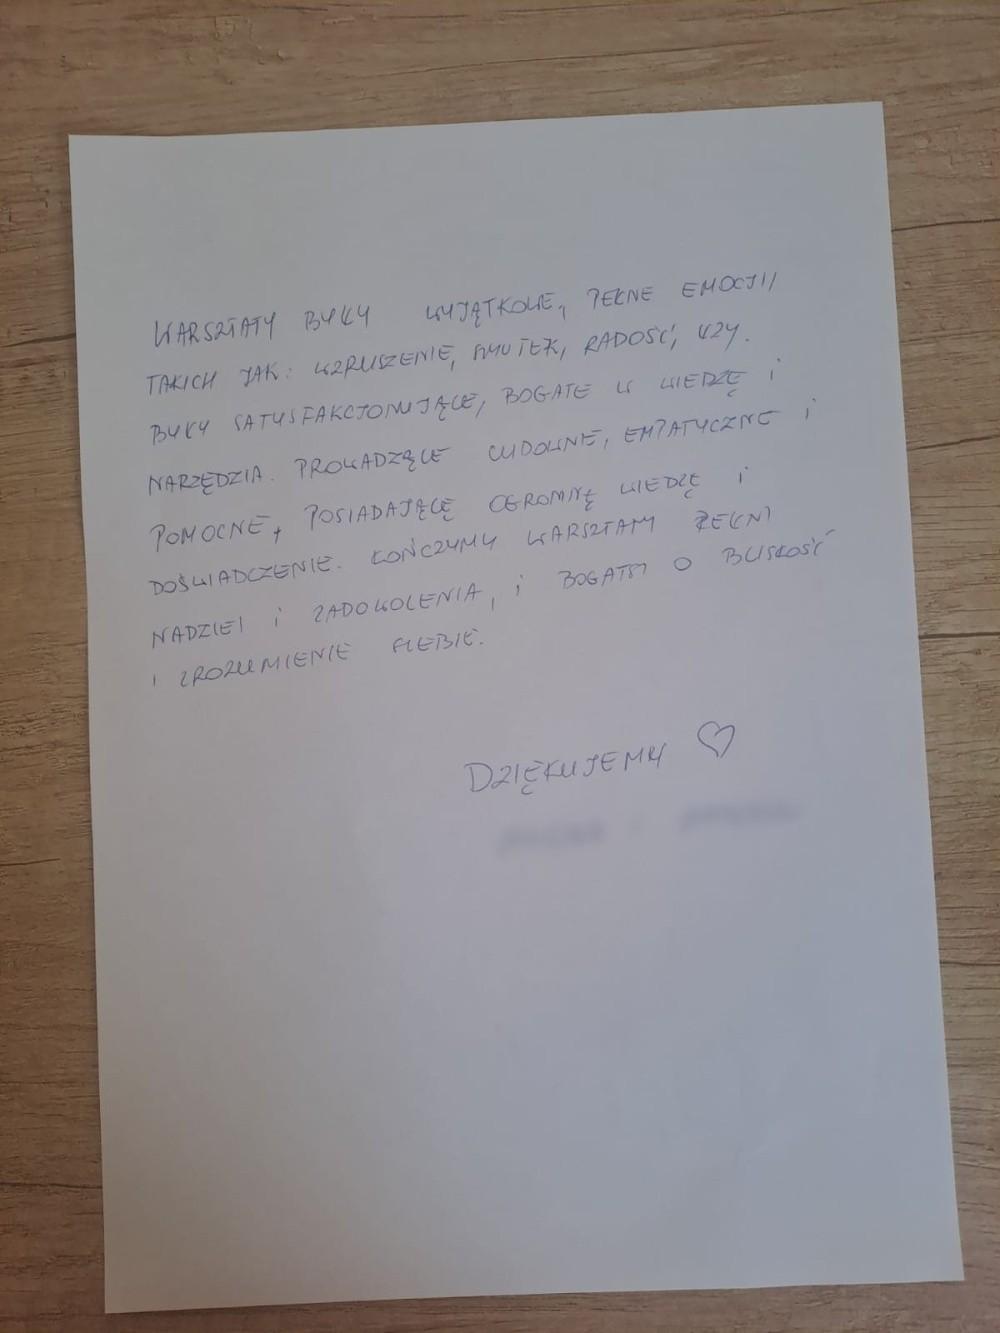 WARSZTATY BYŁY WYJĄTKOWE, PEŁNE EMOCJI,
TAKICH JAK: WZRUSZENIE, SMUTEK, RADOŚĆ, ŁZY.
BYŁY SATYSFAKCJONUJĄCE, BOGATE W WIEDZĘ I
NARZĘDZIA. PROWADZĄCE CUDOWNE, EMPATYCZNE I
POMOCNE, POSIADAJĄCE OGROMNĘ WIEDZĘ I
DOŚWIADCZENIE. KOŃCZYMY WARSZTATY PEŁNI
NADZIEI I ZADOWOLENIA, I BOGATSI O BLISKOŚĆ
I ZROZUMIENIE SIEBIE.
DZIĘKUJEMY ♡